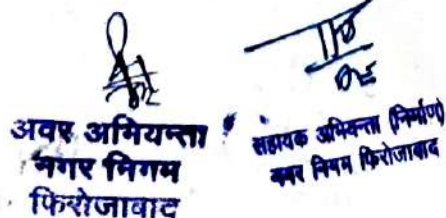 अवर अभियन्ता
नगर निगम
फिरोजाबाद
सहायक अभियन्ता (निर्माण)
नगर निगम फिरोजाबाद